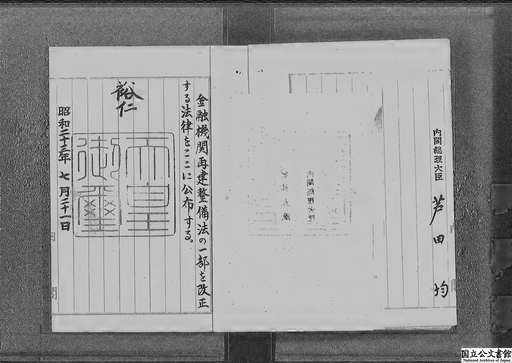 金融機関再建整備法の一部を改正
する法律をここに公布する。
裕仁
天皇
御璽
昭和二十三年 七月二十一日
内閣総理大臣 芦田均
国立公文書館
National Archives of Japan